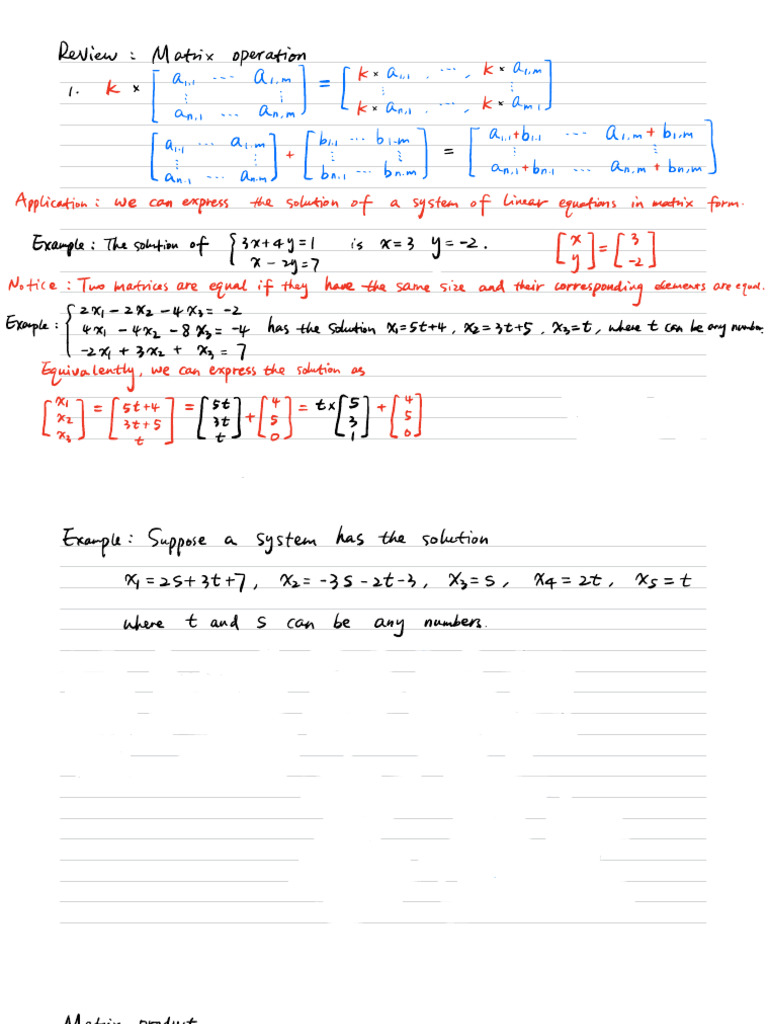 Review : Matrix operation
1. k × [ a1,1 ... a1,m ; ⋮ ⋮ ; an,1 ... an,m ] = [ k × a1,1 , ... , k × a1,m ; ⋮ ⋮ ; k × an,1 ... , k × am1 ]
[ a1,1 ... a1,m ; ⋮ ⋮ ; an,1 ... an,m ] + [ b1,1 ... b1,m ; ⋮ ⋮ ; bn,1 ... bn,m ] = [ a1,1 + b1,1 ... a1,m + b1,m ; ⋮ ⋮ ; an,1 + bn,1 ... an,m + bn,m ]
Application : we can express the solution of a system of linear equations in matrix form.
Example : The solution of { 3x + 4y = 1 ; x - 2y = 7 is x = 3 y = -2 . [ x ; y ] = [ 3 ; -2 ]
Notice : Two matrices are equal if they have the same size and their corresponding elements are equal.
Example : { 2x1 - 2x2 - 4x3 = -2 ; 4x1 - 4x2 - 8x3 = -4 ; -2x1 + 3x2 + x3 = 7 has the solution x1 = 5t+4 , x2 = 3t+5 , x3 = t , where t can be any number.
Equivalently, we can express the solution as
[ x1 ; x2 ; x3 ] = [ 5t+4 ; 3t+5 ; t ] = [ 5t ; 3t ; t ] + [ 4 ; 5 ; 0 ] = t × [ 5 ; 3 ; 1 ] + [ 4 ; 5 ; 0 ]
Example : Suppose a system has the solution
x1 = 2s + 3t + 7 , x2 = -3s - 2t - 3 , x3 = s , x4 = 2t , x5 = t
where t and s can be any numbers.
Matrix product